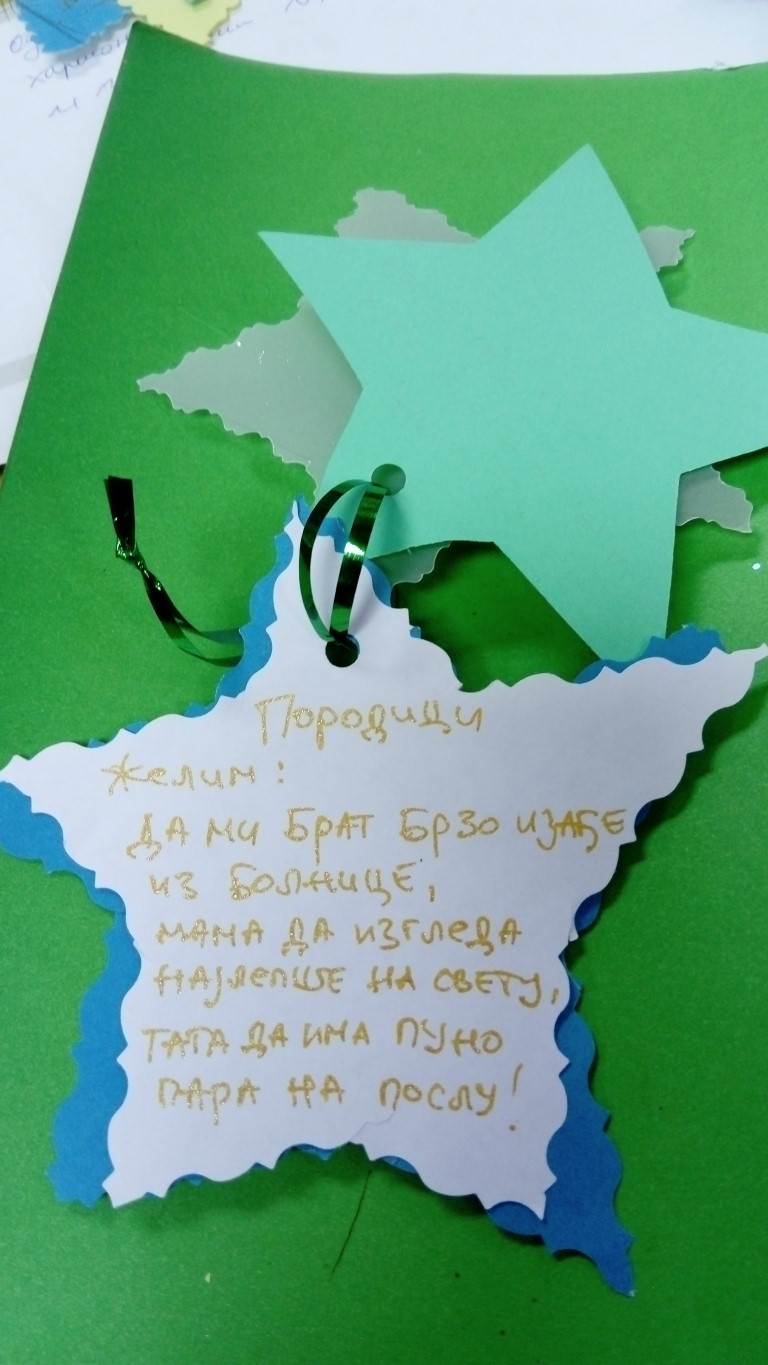 Породици
желим:
ДА МИ БРАТ БРЗО ИЗАЂЕ
ИЗ БОЛНИЦЕ,
МАМА ДА ИЗГЛЕДА
НАЈЛЕПШЕ НА СВЕТУ,
ТАТА ДА ИМА ПУНО
ПАРА НА ПОСЛУ!